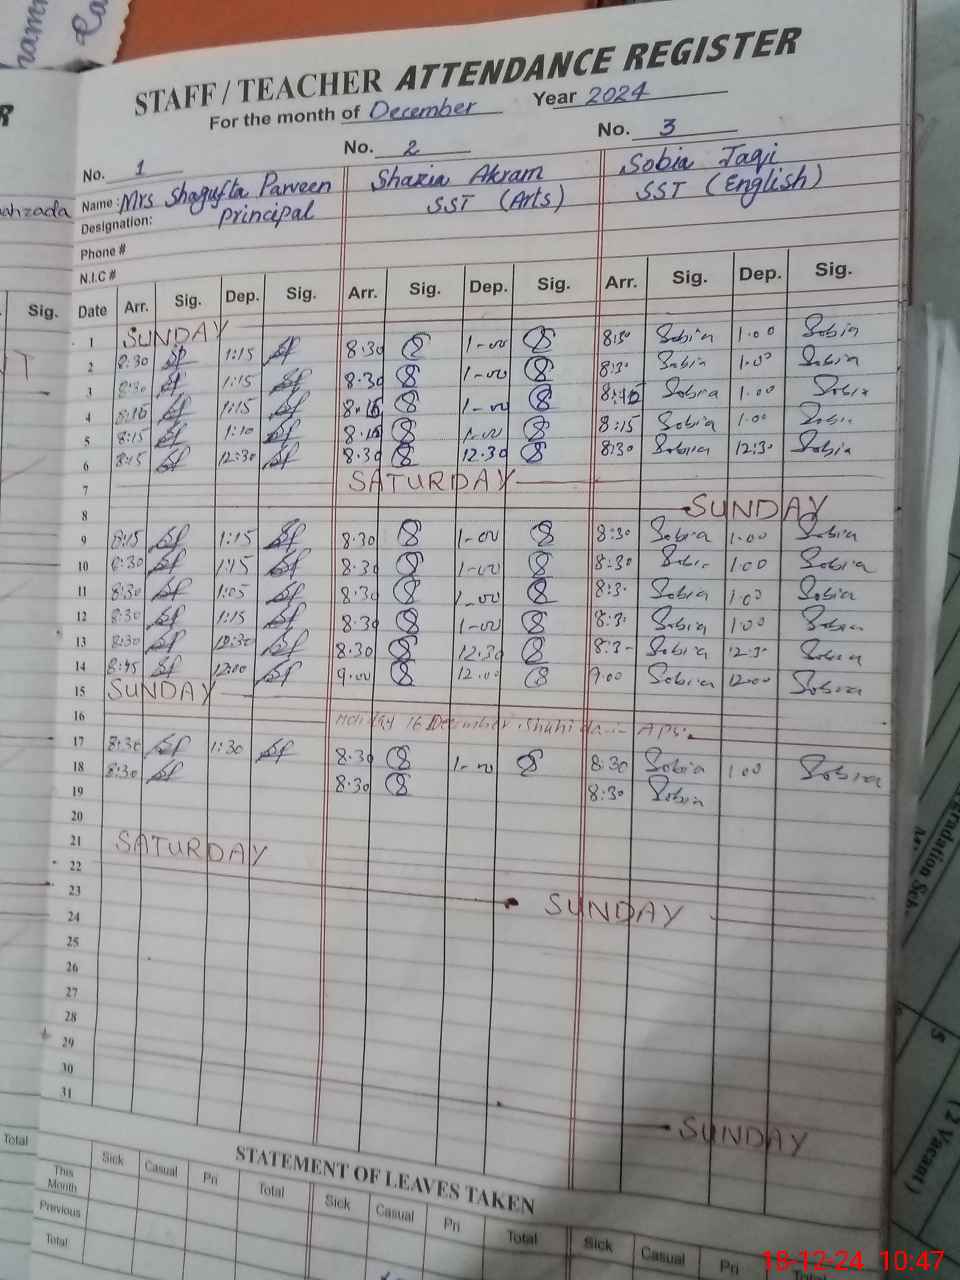 STAFF / TEACHER ATTENDANCE REGISTER
For the month of December Year 2024
No. 1 No. 2 No. 3
Name : Mrs Shagufta Parveen Shazia Akram Sobia Taqi
Designation: Principal SST (Arts) SST (English)
Phone #
N.I.C #
Date Arr. Sig. Dep. Sig. Arr. Sig. Dep. Sig. Arr. Sig. Dep. Sig.
1 SUNDAY
2 8:30 1:15 8:30 1-00 8:30 Sobia 1.00 Sobia
3 8:30 1:15 8.30 1-00 8:30 Sobia 1.00 Sobia
4 1:15 1-00 Sobia 1.00 Sobia
5 8:15 1:10 1-00 8:15 Sobia 1.00 Sobia
6 8:15 12:30 8.30 12.30 8:30 Sobia 12:30 Sobia
7 SATURDAY
8 SUNDAY
9 8:15 1:15 8.30 1-00 8:30 Sobia 1.00 Sobia
10 8:30 1:15 8.30 1-00 8:30 Sobia 1.00 Sobia
11 8:30 1:05 8.30 1-00 8:30 Sobia 1.00 Sobia
12 8:30 1:15 8.30 1-00 8:30 Sobia 1.00 Sobia
13 8:30 12:30 8.30 12.30 8:30 Sobia 12:30 Sobia
14 8:45 12:00 9.00 12.00 9.00 Sobia 12.00 Sobia
15 SUNDAY
16 Holiday 16 December APS.
17 8:30 1:30 8.30 1-00 8:30 Sobia 1.00 Sobia
18 8:30 8.30 8:30 Sobia
19
20
21 SATURDAY
22
23 SUNDAY
24
25
26
27
28
29
30
31 SUNDAY
STATEMENT OF LEAVES TAKEN
Sick Casual Pri Total Sick Casual Pri Total Sick Casual Pri Total
This Month
Previous
Total
Sig.
Total
(2 Vacant)
18-12-24 10:47